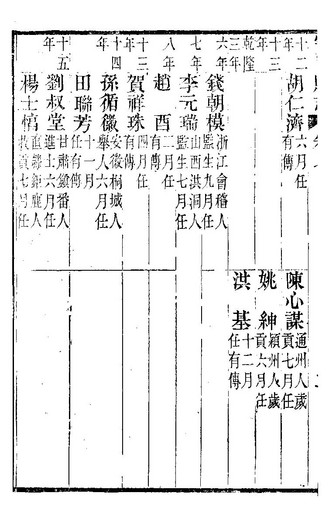 十二年
胡仁濟 六月任有傳
陳心謀 通州人歲貢七月任
十三年
姚紳 潁州人歲貢六月任
乾隆三年
洪基 十二月任有傳
六年
錢朝模 浙江會稽人監生九月任
七年
李元瑞 山西洪洞人監生七月任
八年
趙酉 二月任有傳
十三年
賀祥珠 四月任有傳
十四年
孫循徽 安徽桐城人舉人六月任
田聯芳 十一月任有傳
十五年
劉叔堂 甘肅鎮番人進士六月任
楊士 直隸鉅鹿人拔貢七月任